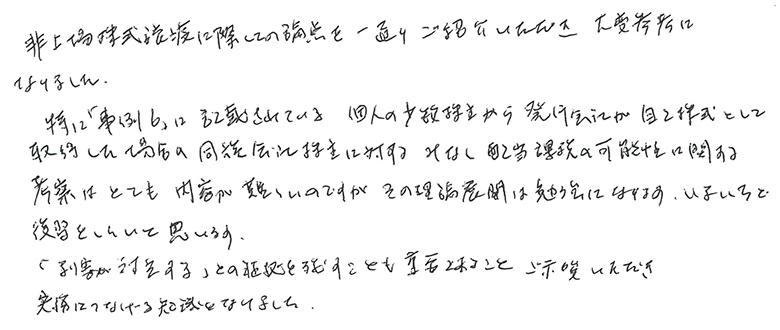 非上場株式譲渡に際しての論点を一通りご紹介いただき 大変参考に
なりました.
特に「事例6」に記載されている 個人の少数株主から発行会社が自己株式として
取得した場合の同族会社株主に対するみなし配当課税の可能性に関する
考察は とても 内容が難しいのですが その理論展開は勉強になります. いろいろと
復習をしたいと思います.
「利害が対立する」との証拠を残すことも重要であること ご示唆いただき
実務につなげる知識となりました.